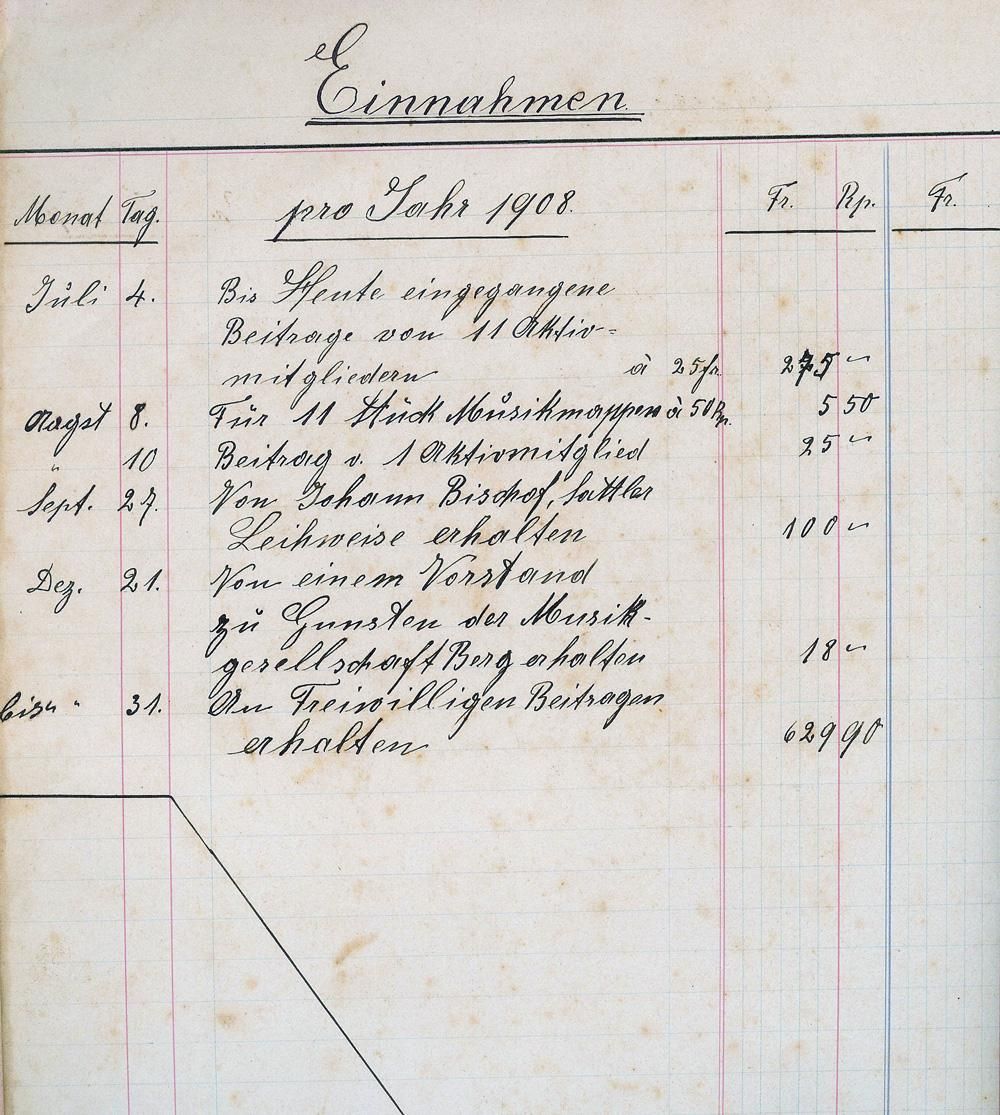 Einnahmen.
Monat Tag. pro Jahr 1908. Fr. Rp. Fr.
Juli 4. Bis Heute eingegangene
Beitrage von 11 Aktiv-
mitgliedern à 25 fr. 275 "
Augst 8. Für 11 Stück Musikmappen à 50 Rp. 5 50
" 10 Beitrag v. 1 Aktivmitglied 25 "
Sept. 27. Von Johann Bischof, Sattler
Leihweise erhalten 100 "
Dez. 21. Von einem Vorstand
zu Gunsten der Musik-
gesellschaft Berg erhalten 18 "
bis " " 31. An Freiwilligen Beitragen
erhalten 629 90